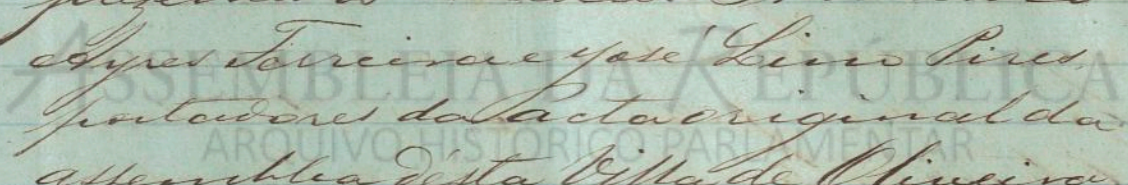 Ayres Ferreira e José Lino Pires
portadores da acta original da
assemblea désta Villa de Oliveira
ASSEMBLEIA DA REPÚBLICA
ARQUIVO HISTÓRICO PARLAMENTAR